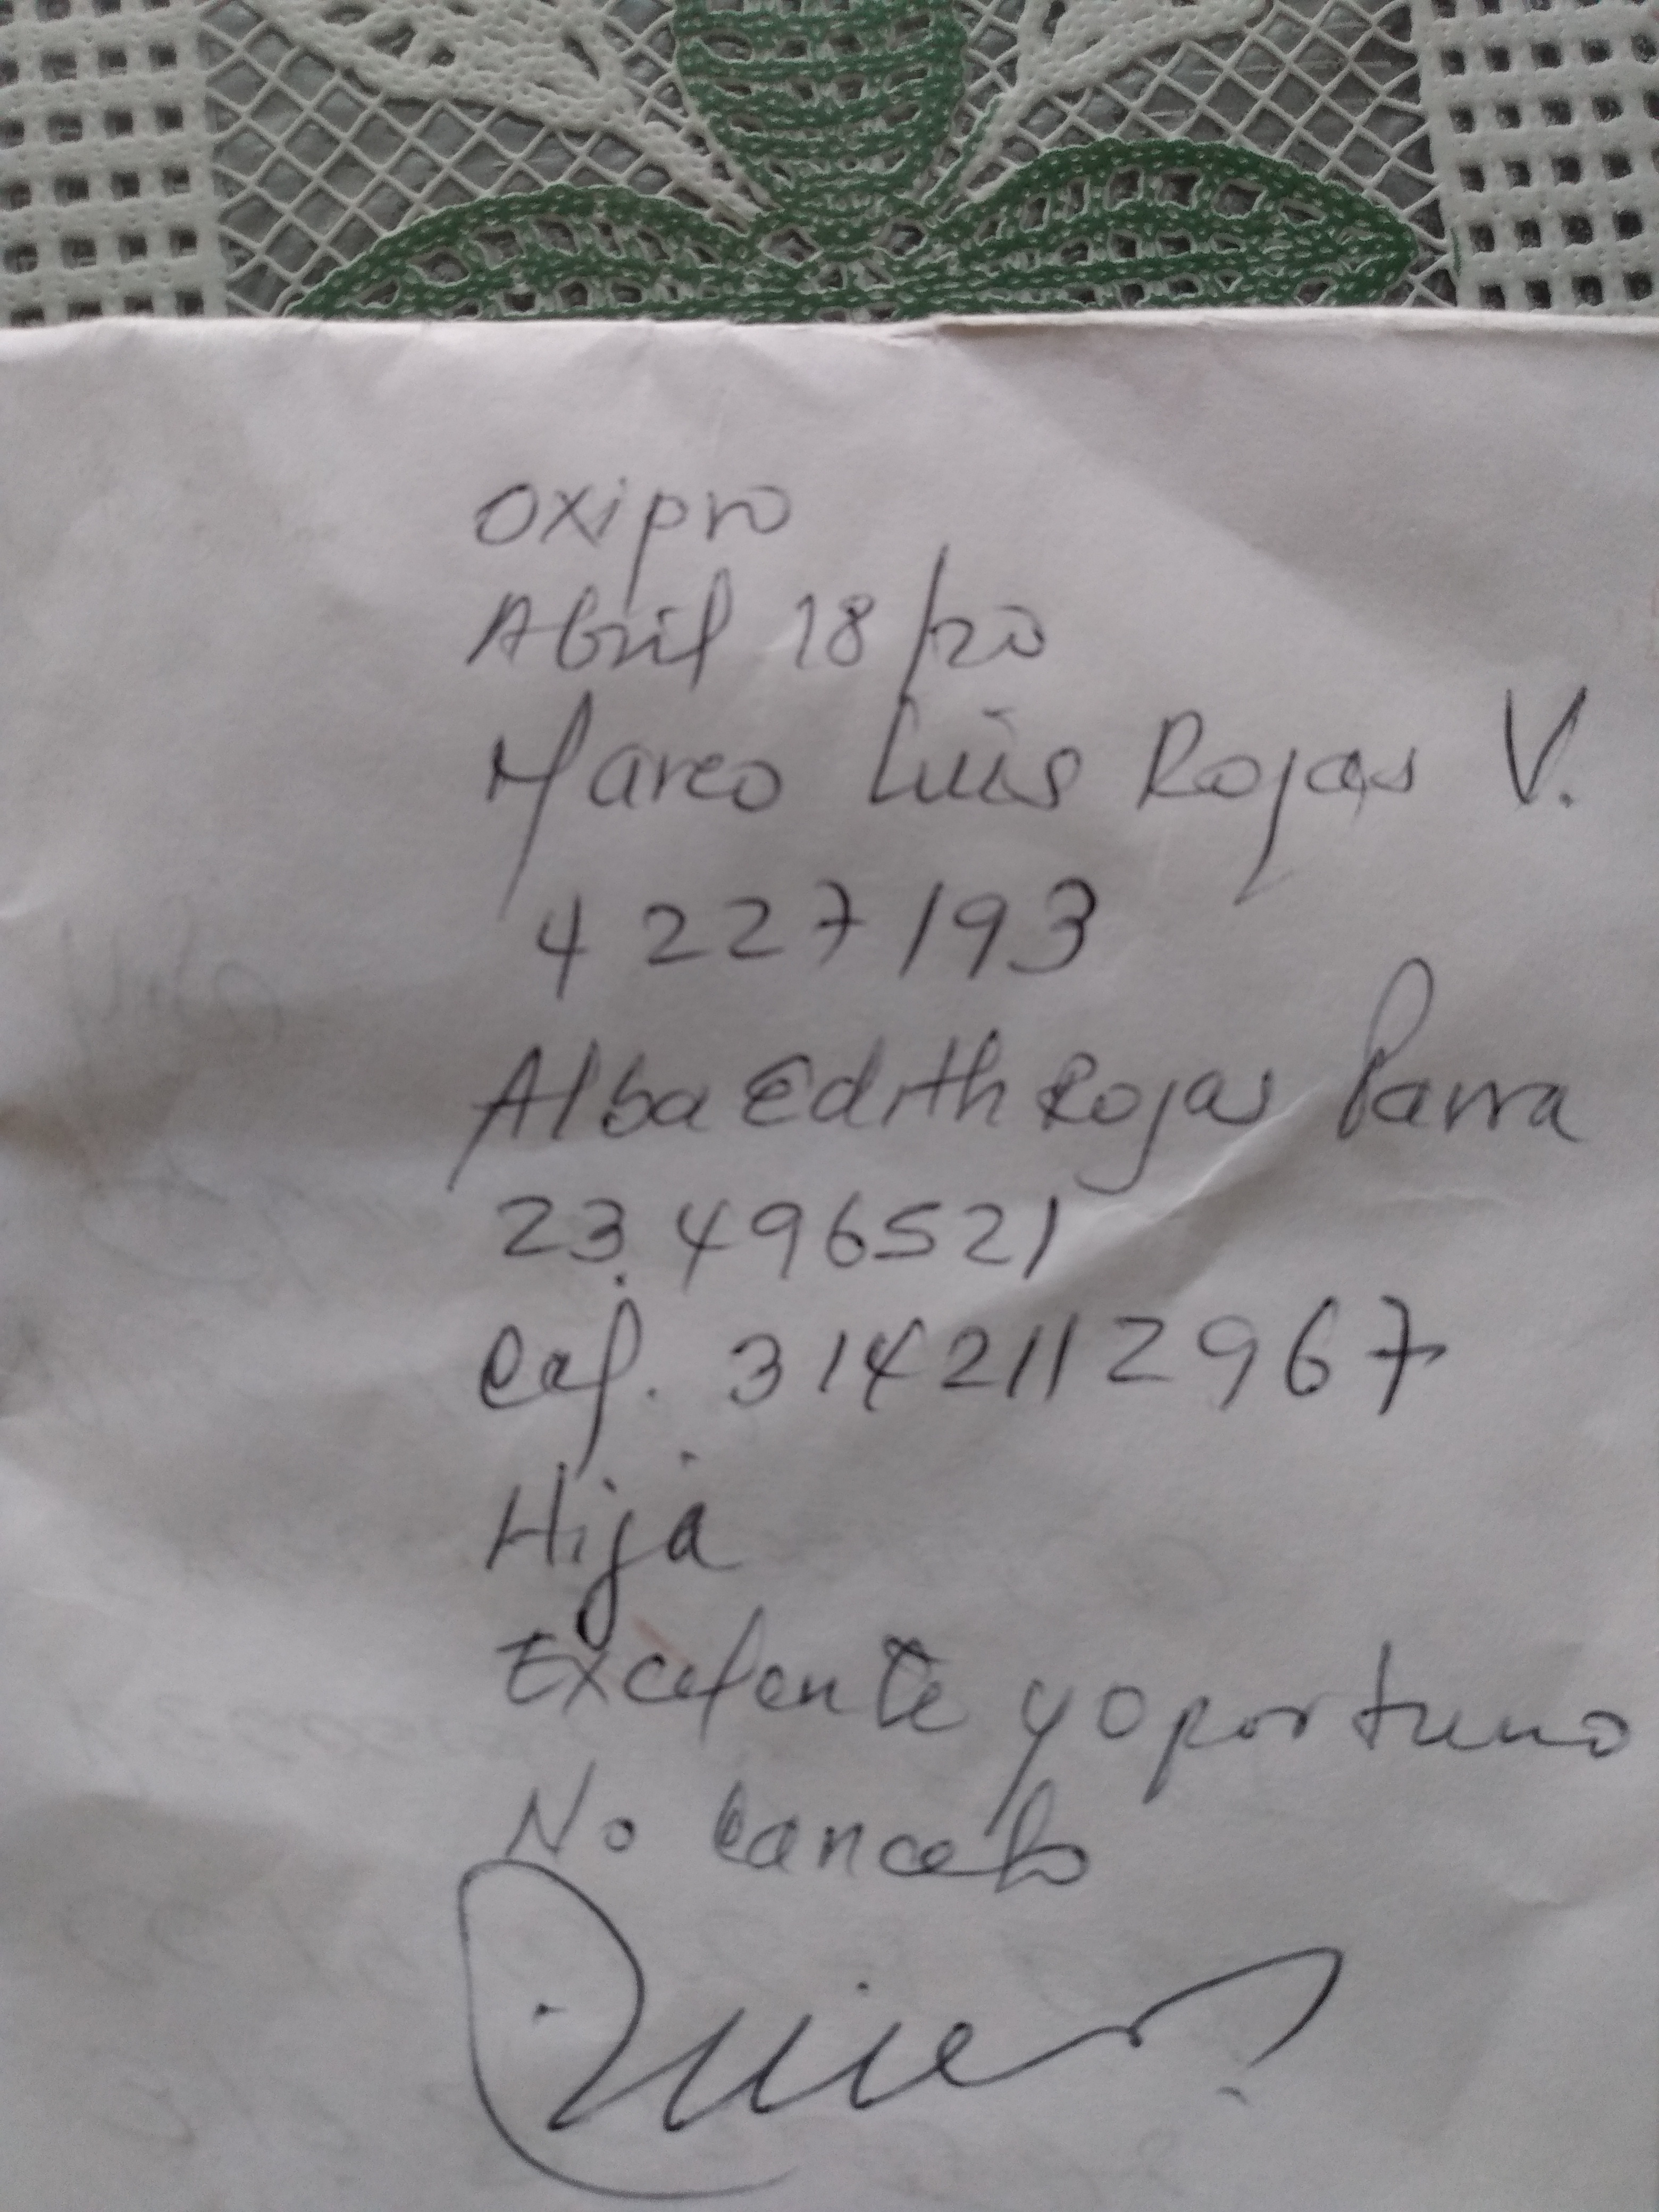 Oxipro
Abril 18/20
Marco Luis Rojas V.
4227193
Alba Edith Rojas Parra
23.496521
Cel. 3142112967
Hija
Excelente y oportuno
No cancelo